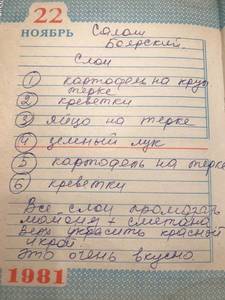 22
НОЯБРЬ
Салат
Боярский.
Слои
1 картофель на круп.
терке
2 креветки
3 яйцо на терке
4 цемный лук
5 картофель на терке
6 креветки
Все слои промазать
майонез + сметана
верх украсить красной
икрой
Это очень вкусно
1981